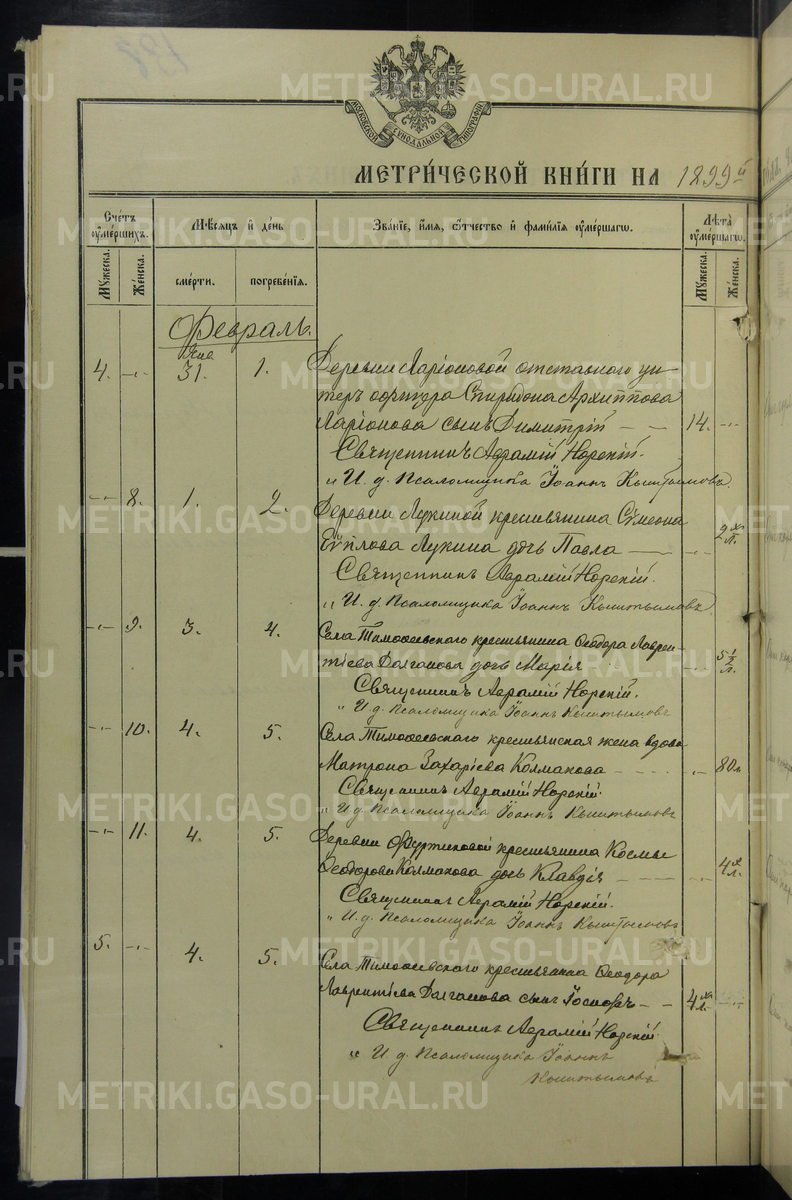 138
МОСКОВСКОЙ СѴНОДАЛЬНОЙ ТИПОГРАФІИ
МЕТРИ́ЧЕСКОЙ КНИ́ГИ НА 1899й
Сче́тъ ᲂу҆ме́ршихъ. Мѣ́сяцъ и҆ де́нь Зва́нїе, и҆́мя, ѻ҆́тчество и҆ фами́лїя ᲂу҆ме́ршагѡ. Лѣта̀ ᲂу҆ме́ршагѡ.
Му́жеска. Же́нска. сме́рти. погребе́нїя. Му́жеска. Же́нска.
Февраль.
Янв
4. -"- 31. 1. Деревни Ларіоновой отставного ун-
теръ офицера Спиридона Архиппова
Ларіонова сынъ Димитрій 14. -"-
Священникъ Авраамій Норскій.
" И. д. Псаломщика Іоаннъ Кыштымовъ.
-"- 8. 1. 2. Деревни Лукиной крестьянина Сѵмеона
Евплова Лукина дочь Павла -"- 2 хъ л.
Священникъ Авраамій Норскій.
" И. д. Псаломщика Іоаннъ Кыштымовъ
-"- 9. 3. 4. Села Тимоѳеевскаго крестьянина Ѳеодора Лаврен-
тіева Долганова дочь Марія -"- 5 1/2 л.
Священникъ Авраамій Норскій.
" И. д. Псаломщика Іоаннъ Кыштымовъ
-"- 10. 4. 5. Села Тимоѳеевскаго крестьянская жена вдова
Матрона Захаріева Колмакова -"- 80 л.
Священникъ Авраамій Норскій.
" И. д. Псаломщика Іоаннъ Кыштымовъ
-"- 11. 4. 5. Деревни Фуртиковой крестьянина Космы
Ѳеодорова Колмакова дочь Клавдія -"- 4 х л.
Священникъ Авраамій Норскій.
" И. д. Псаломщика Іоаннъ Кыштымовъ
5. -"- 4. 5. Села Тимоѳеевскаго крестьянина Ѳеодора
Лаврентіева Долганова сынъ Іосифъ 4 хъ л. -"-
Священникъ Авраамій Норскій
" И. д. Псаломщика Іоаннъ
Кыштымовъ
METRIKI.GASO-URAL.RU